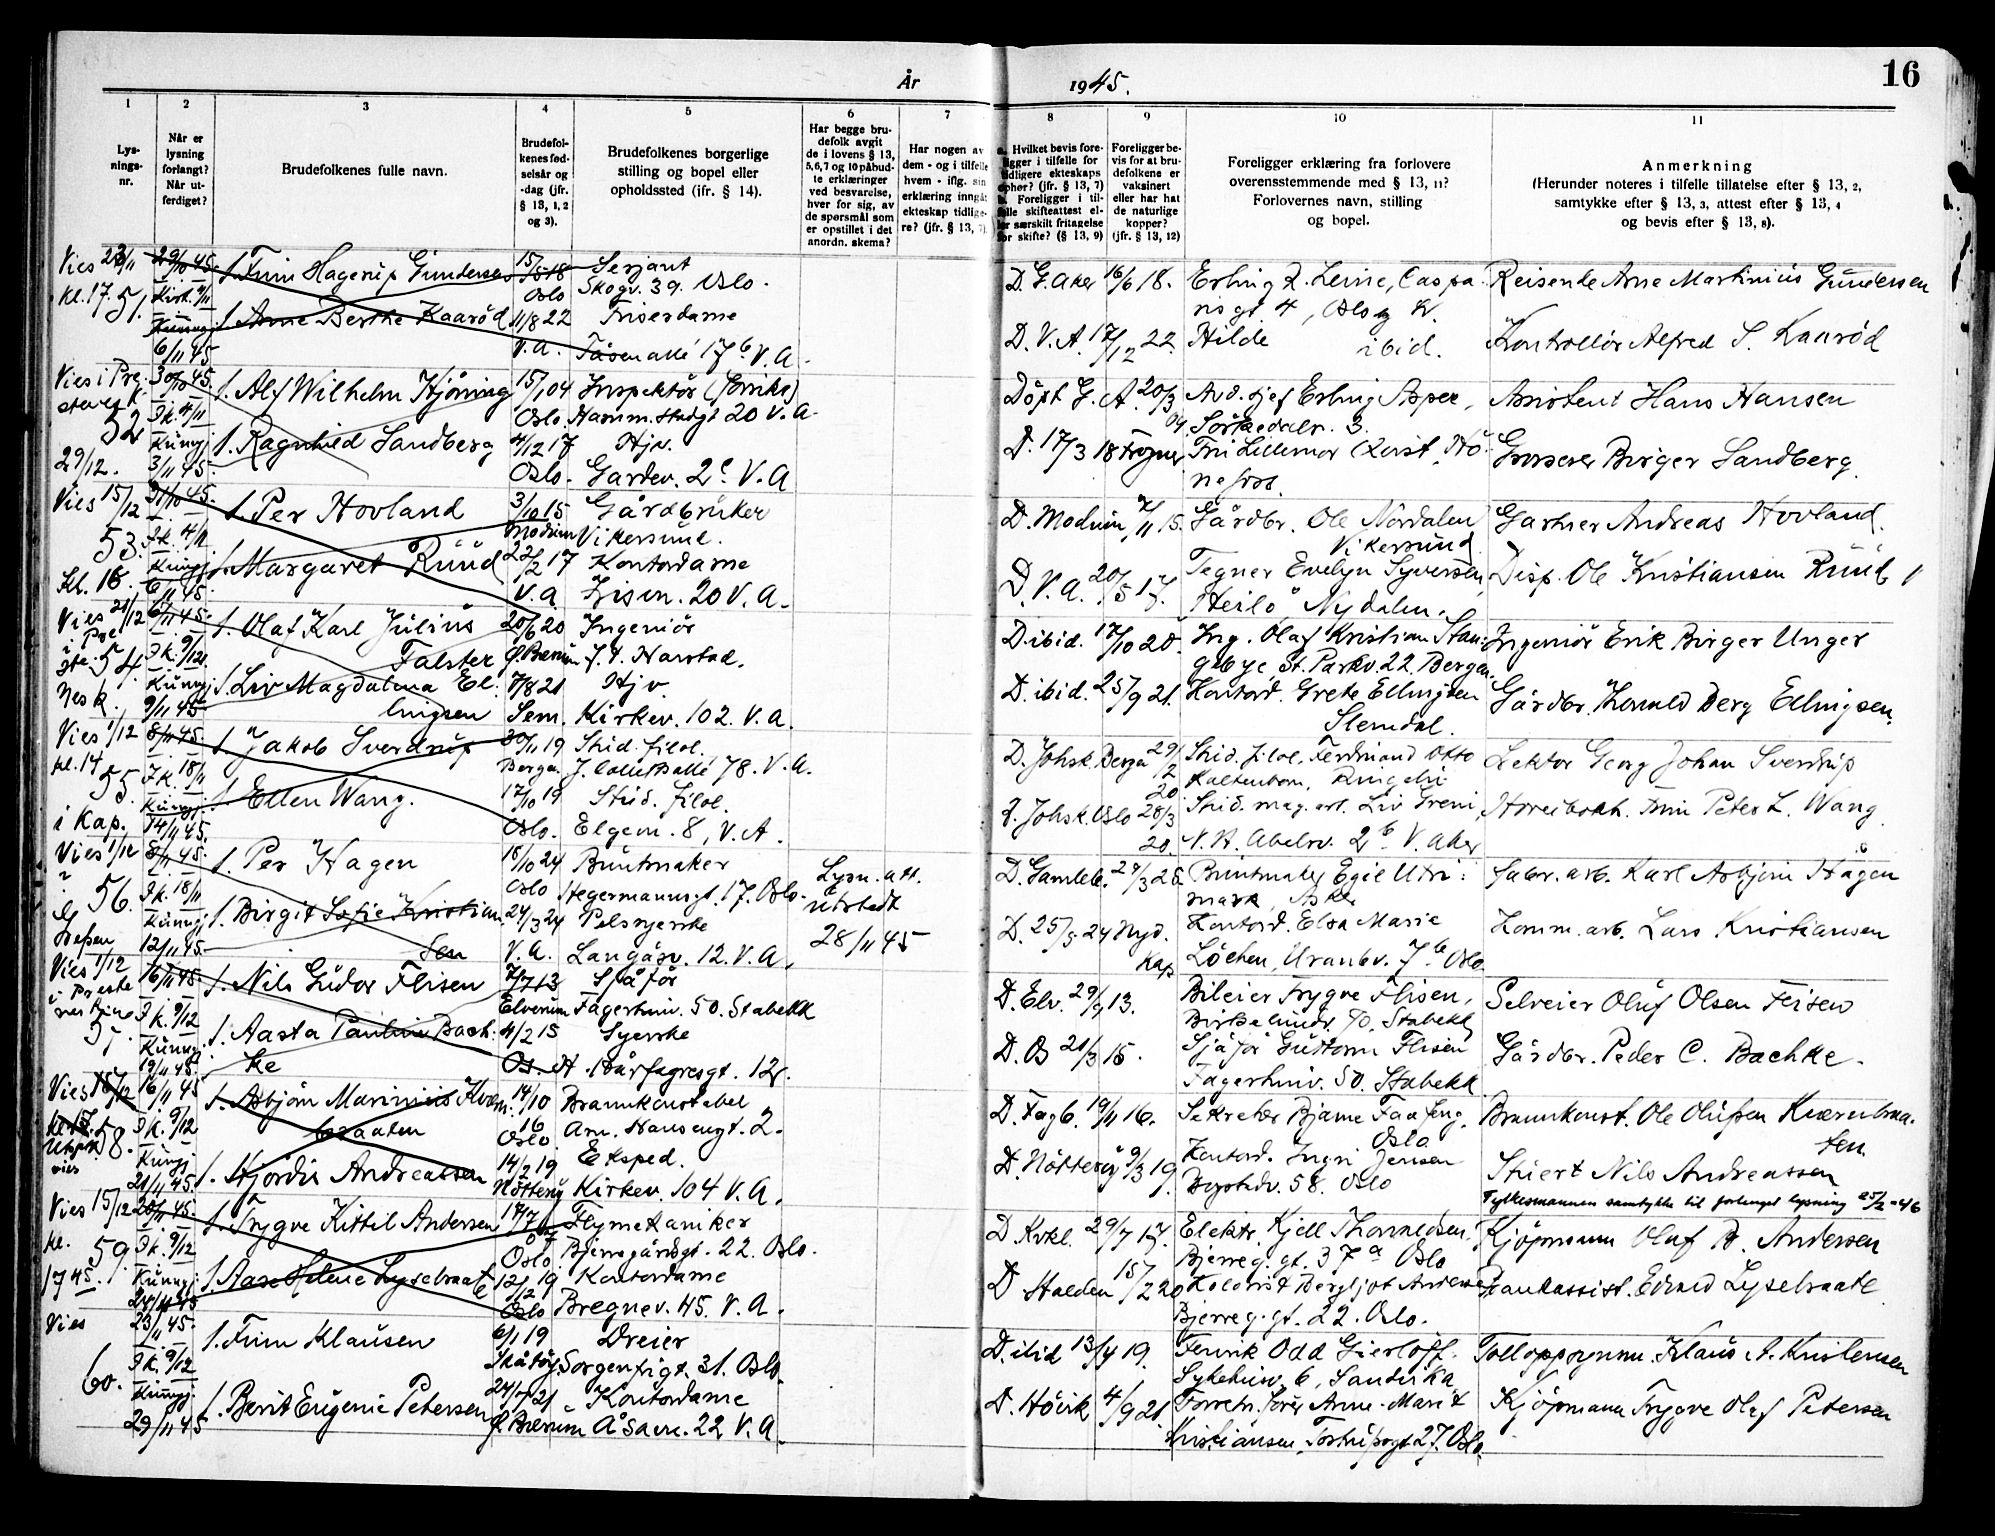 År 1945.
16
1 2 3 4 5 6 7 8 9 10 11
Lysnings-nr.
Når er lysning forlangt? Når utferdiget?
Brudefolkenes fulle navn.
Brudefolkenes fødselsår og -dag (jfr. § 13, 1, 2 og 3).
Brudefolkenes borgerlige stilling og bopel eller opholdssted (ifr. § 14).
Har begge brudefolk avgit de i lovens § 13, 5,6,7 og 10 påbudte erklæringer ved besvarelse, hver for sig, av de spørsmål som er opstillet i det anordn. skema?
Har nogen av dem - og i tilfelle hvem - iflg. sin erklæring inngått ekteskap tidligere? (jfr. § 13, 7).
Hvilket bevis foreligger i tilfelle for tidligere ekteskaps ophør? (jfr. § 13, 7) Foreligger i tilfelle skifteattest eller særskilt fritagelse for skifte? (§ 13, 9)
Foreligger bevis for at brudefolkene er vaksinert eller har hat de naturlige kopper? (jfr. § 13, 12)
Foreligger erklæring fra forlovere overensstemmende med § 13, 11? Forlovernes navn, stilling og bopel.
Anmerkning (Herunder noteres i tilfelle tillatelse efter § 13, 2, samtykke efter § 13, 3, attest efter § 13, 4 og bevis efter § 13, 8).
Vies 23/11 kl. 17. 51. 29/10 45. 6/11 45
1. Finn Hagerup Gundersen 15/5 18 Oslo Serjant Skogv. 39. Oslo. D. G. Aker 16/6 18. Reisende Arne Martinius Gundersen
1. Anne Berthe Kaarød 11/8 22 V.A. Frisørdame Tåsenallé 17 b V.A. D. V. A. 17/12 22. Hilde ibid. Kontrollør Alfred S. Kaarød
52 29/12. 30/10 45. Ik. 4/11 Kungj. 3/11 45.
1. Alf Wilhelm Hjørning 15/1 04 Oslo. Inspektør Hamm.stadgt 20 V.A. Døpt G. A. 20/3 04. Avd. sjef Erling Asper, Sørkedalv. 3. Assistent Hans Hansen
1. Ragnhild Sandberg 4/12 17 Oslo. Hjv. Gardev. 2c V.A D. 17/3 18 Frogner Fru Lillemor Kvist, Hønefoss. Grosserer Birger Sandberg.
Vies 15/12 53. Kl. 16. 31/10 45. Ik. 4/11 Kungj. 6/11 45.
1. Per Hovland 3/10 15 Modum Gårdbruker Vikersund. D. Modum, 7/11 15. Gårdbr. Ole Nordalen Vikersund Gartner Andreas Hovland.
1. Margaret Ruud 22/2 17 V.A. Kontordame Lisen. 20 V.A. D. V.A. 20/5 17. Tegner Evelyn Syversen, Heilo Nydalen. Disp. Ole Kristiansen Ruud
Vies 21/12 54. 6/11 45. Ik. 9/12. Kungj. 9/11 45
1. Olaf Karl Julius Falster 20/6 20 Ø. Bærum Ingeniør Harstad. D. ibid. 17/10 20. Ing. Olaf Kristian Stangebye, St. Parkv. 22 Bergen. Ingeniør Erik Birger Unger
1. Liv Magdalena Ellingsen 7/8 21 Sem. Hjv Kirkev. 102. V.A. D. ibid. 25/9 21. Kontord. Grete Ellingsen Slemdal. Gårdbr. Harald Berg Ellingsen.
Vies 1/12 kl. 14 55. i Kap. 8/11 45. Ik. 18/11 Kungj. 14/11 45.
1. Jakob Sverdrup 30/11 19 Bergen Stud. filol. J. Colletsallé 78. V.A. D. Johsk. Bergen 29/2 20 Stud. filol. Ferdinand Otto Kaltenborn, Lektor Georg Johan Sverdrup
1. Ellen Wang. 17/10 19 Oslo. Stud. filol. Elgem. 8, V.A. D. Johsk. Oslo 28/3 20. Stud. mag. art. Liv Greni, N. H. Abelsv. 2b V. Aker Finn Peter L. Wang
Vies 1/12 56. 8/11 45. Ik. 18/11 Kungj. 12/11 45.
1. Per Hagen 18/10 24 Oslo Buntmaker Hegermannsgt. 17. Oslo. Lysn. att. utstedt 28/11 45 Buntmaker Egil Asker fabr. arb. Karl Asbjørn Hagen
1. Birgit Sofie Kristiansen 24/3 24 V.A. Pelssyerske Langåsv. 12. V.A. D. 25/5 24 Nyd. Kap Kontord. Elsa Marie Løchen, Uranbv. 7b Oslo. Komm. arb. Lars Kristiansen
Vies 1/12 57 16/11 45. Ik. 9/12 Kungj. 19/11 45.
1. Nils Gudor Flisen 7/7 13 Elverum Sjåfør Fagerhuiv. 50. Stabekk D. Elv. 29/9 13. Bileier Trygve Flisen, Stabekk Selveier Oluf Olsen Flisen
1. Aasta Pauline Bachke 4/2 15 Os. Syerske Hårfagresgt. 12. D. Os 21/3 15. Sjåfør Guttorm Flisen Fagerhuiv. 50. Stabekk Gårdbr. Peder C. Bachke.
Vies 15/12 58. 16/11 45 Ik. 9/12 Kungj. 21/11 45.
1. Asbjørn Marinius Kværnbraaten 14/10 16 Oslo Brannkonstabel Arn. Hansengt. 2. D. Fagb. 19/11 16. Sekretær Bjarne Faafeng, Oslo Brannkonst. Ole Olufsen Kværnbraaten
1. Hjørdis Andreassen 14/2 19 Nøtterøy Eksped. Kirkev. 104 V.A. D. Nøtterøy 9/3 19. Kontord. Ingri Jensen Bygdøv. 58. Oslo Stuert Nils Andreassen
Fylkesmannen samtykke til forlenget lysning 25/2-46
Vies 15/12 kl. 17 45 59. 20/11 45. Ik. 9/12 Kungj. 24/11 45
1. Trygve Kittil Andersen Oslo Flymekaniker Bjerregårdsgt. 22. Oslo. D Krkl. 29/7 17. Elektr. Kjell Thorvaldsen, Bjerreg. gt. 37a Oslo Kjøpmann Olaf B. Andersen
1. Aase Helene Lyselraate 12/12 19 Oslo Kontordame Bregnev. 45. V.A. D Halden 15/2 20 Bergljot Andersen, Bjerreg. gt. 22. Oslo. Bankassist. Edvard Lyselraate
Vies 60. 23/11 45. Ik. 9/12 Kungj. 29/11 45
1. Finn Klausen 6/1 19 Skåtøy Dreier Sorgenfrigt. 31. Oslo. D. ibid 13/4 19. Fenrik Odd Gierløff. Sykehusv. 6, Sandvika Tolloppsynsm. Klaus A. Kristensen
1. Berit Eugenie Petersen Ø. Bærum Kontordame Åsavn. 22 V.A. D. Høvik 4/9 21. Anne-Marit Kristiansen, Tostrupsgt. 27. Oslo. Kjøpmann Trygve Olaf Petersen